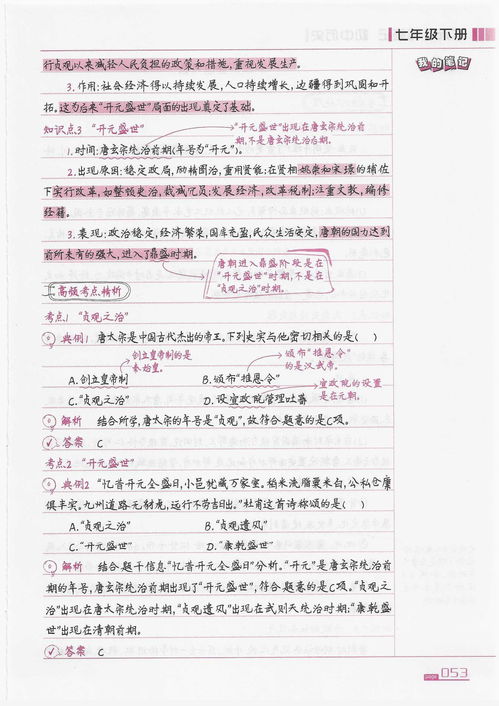 七年级下册
我的笔记
行贞观以来减轻人民负担的政策和措施,重视发展生产。
3.作用:社会经济得以持续发展,人口持续增长,边疆得到巩固和开
拓。这为后来“开元盛世”局面的出现奠定了基础。
知识点3 “开元盛世”
“开元盛世”出现在唐玄宗统治前
期,不是唐玄宗统治后期。
1.时间:唐玄宗统治前期(年号为“开元”)。
2.出现原因:稳定政局,励精图治,重用贤能;在贤相姚崇和宋璟的辅佐
下实行改革,如整顿吏治,裁减冗员;发展经济,改革税制;注重文教,编修
经籍。
3.表现:政治稳定,经济繁荣,国库充盈,民众生活安定,唐朝的国力达到
前所未有的强大,进入了鼎盛时期。
唐朝进入鼎盛阶段是在
“开元盛世”时期,不是在
“贞观之治”时期。
高频考点精析
考点1 “贞观之治”
典例1 唐太宗是中国古代杰出的帝王。下列史实与他密切相关的是( )
创立皇帝制的是
秦始皇。
颁布“推恩令”
的是汉武帝。
A.创立皇帝制 B.颁布“推恩令”
宣政院的设置
是在元朝。
C.“贞观之治” D.设宣政院管理吐蕃
解析 结合所学,唐太宗的年号是“贞观”,故符合题意的是C项。
答案 C
考点2 “开元盛世”
典例2 “忆昔开元全盛日,小邑犹藏万家室。稻米流脂粟米白,公私仓廪
俱丰实。九州道路无豺虎,远行不劳吉日出。”杜甫这首诗称颂的是( )
A.“贞观之治” B.“贞观遗风”
C.“开元盛世” D.“康乾盛世”
解析 结合题干信息“忆昔开元全盛日”分析。“开元”是唐玄宗统治前
期的年号,唐玄宗统治前期出现了“开元盛世”,符合题意的是C项。“贞观之
治”出现在唐太宗统治时期,“贞观遗风”出现在武则天统治时期;“康乾盛
世”出现在清朝前期。
答案 C
page 053